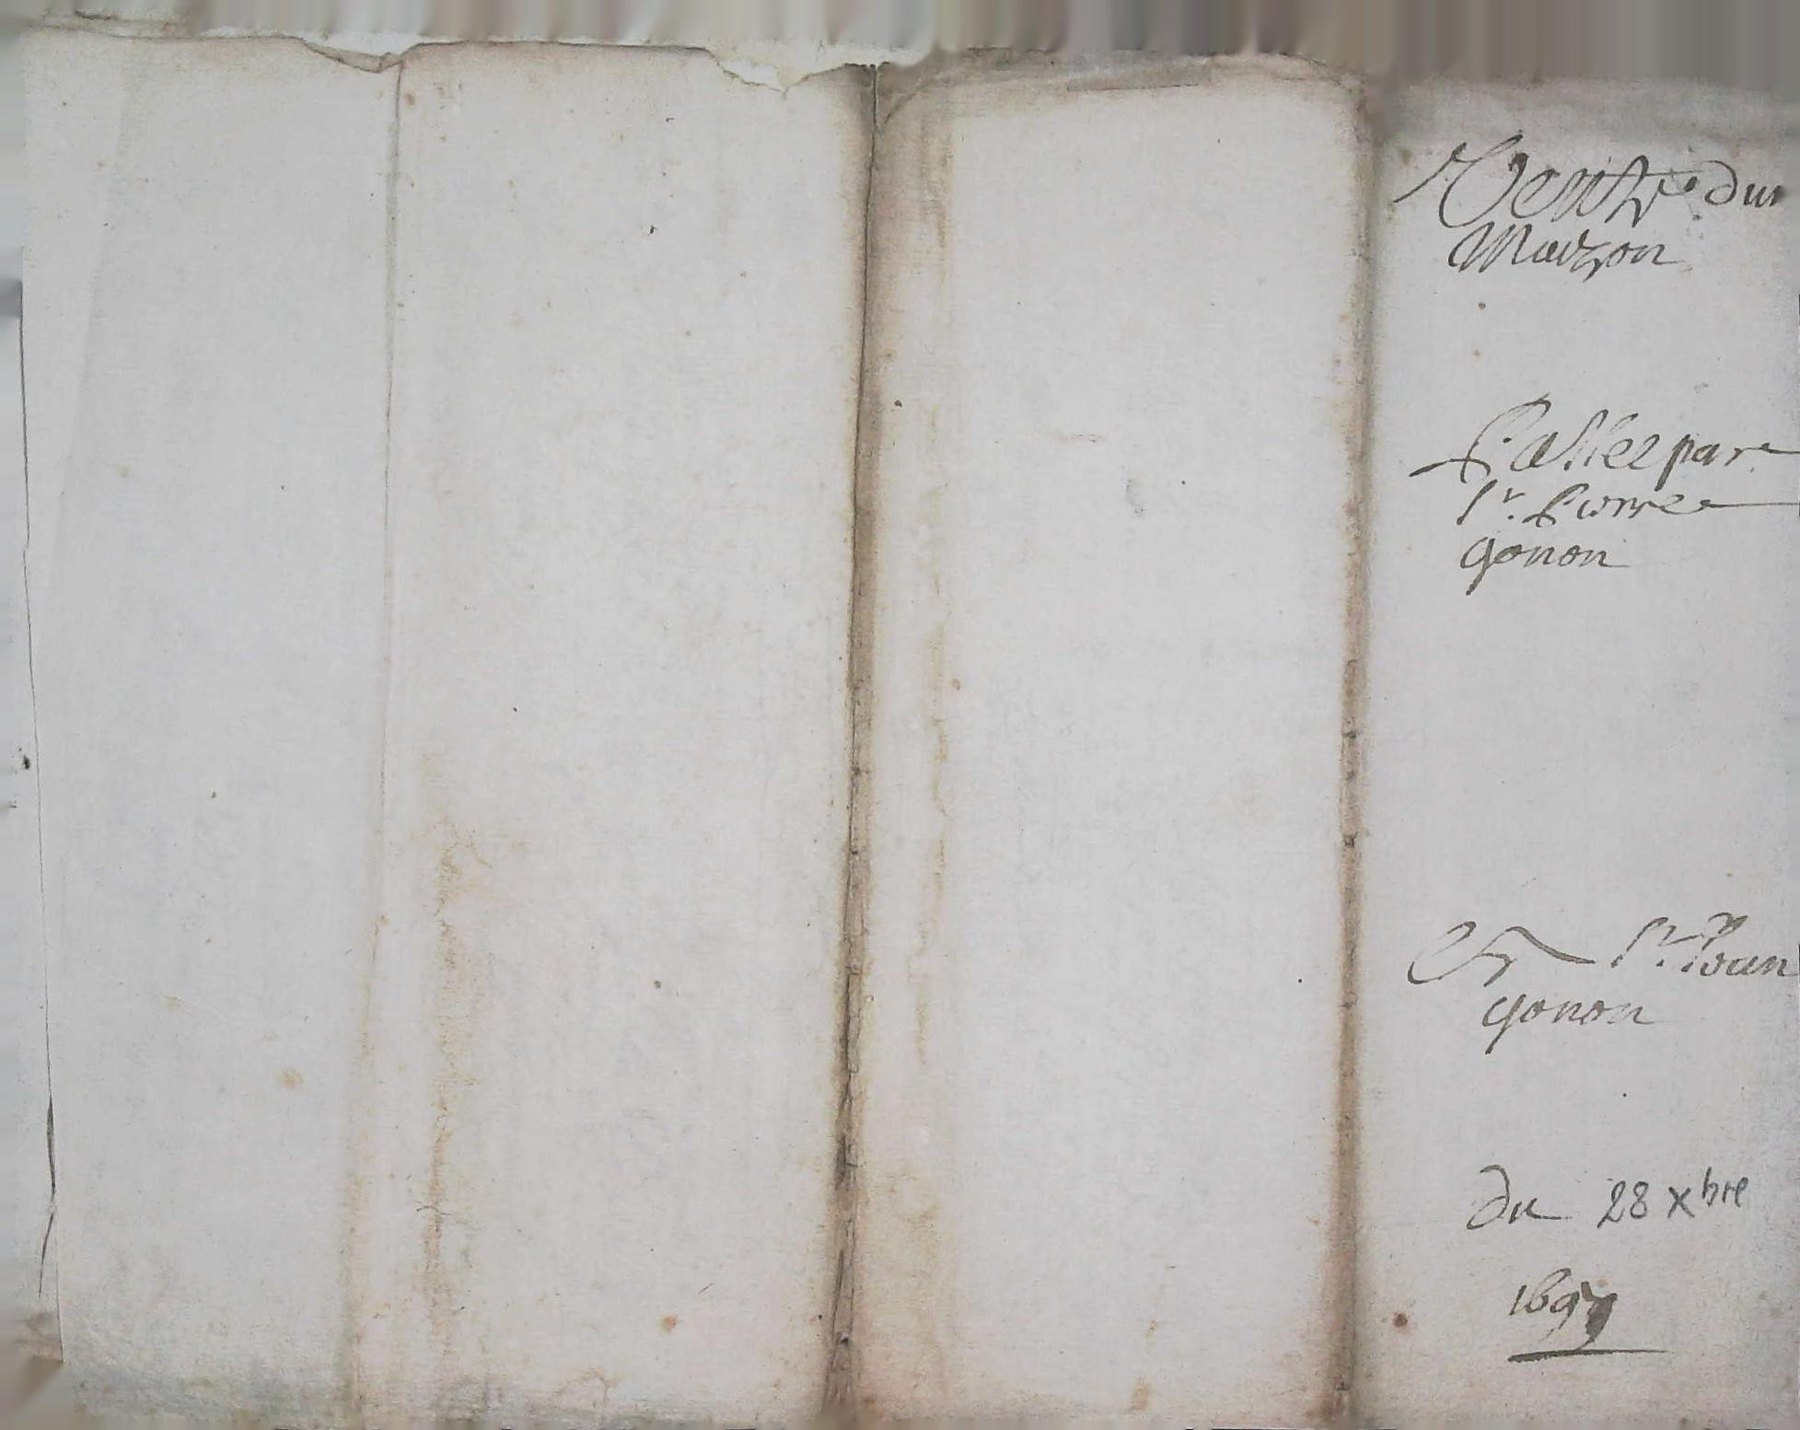 Vente dun
Maizon
Passee par
Sr. Pierre
gonon
Et Sr. Jean
gonon
du 28 xbre
1699